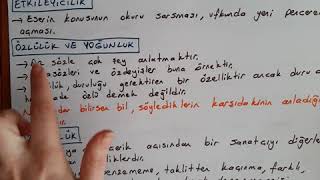 ETKİLEYİCİLİK
→ Eserin konusunun okuru sarsması, ufkunda yeni pencereler
açması.
ÖZLÜLÜK VE YOĞUNLUK
→ Az sözle çok şey anlatmaktır.
sözleri ve özdeyişler buna örnektir.
duruluğu gerektiren bir özelliktir ancak duru
özlü demek değildir.
bilirsen bil, söylediklerin karşındakinin anladığı
LÜK
içerik açısından bir sanatçıyı diğerl
liklerdir.
benzememe, taklitten kaçınma, farklı,